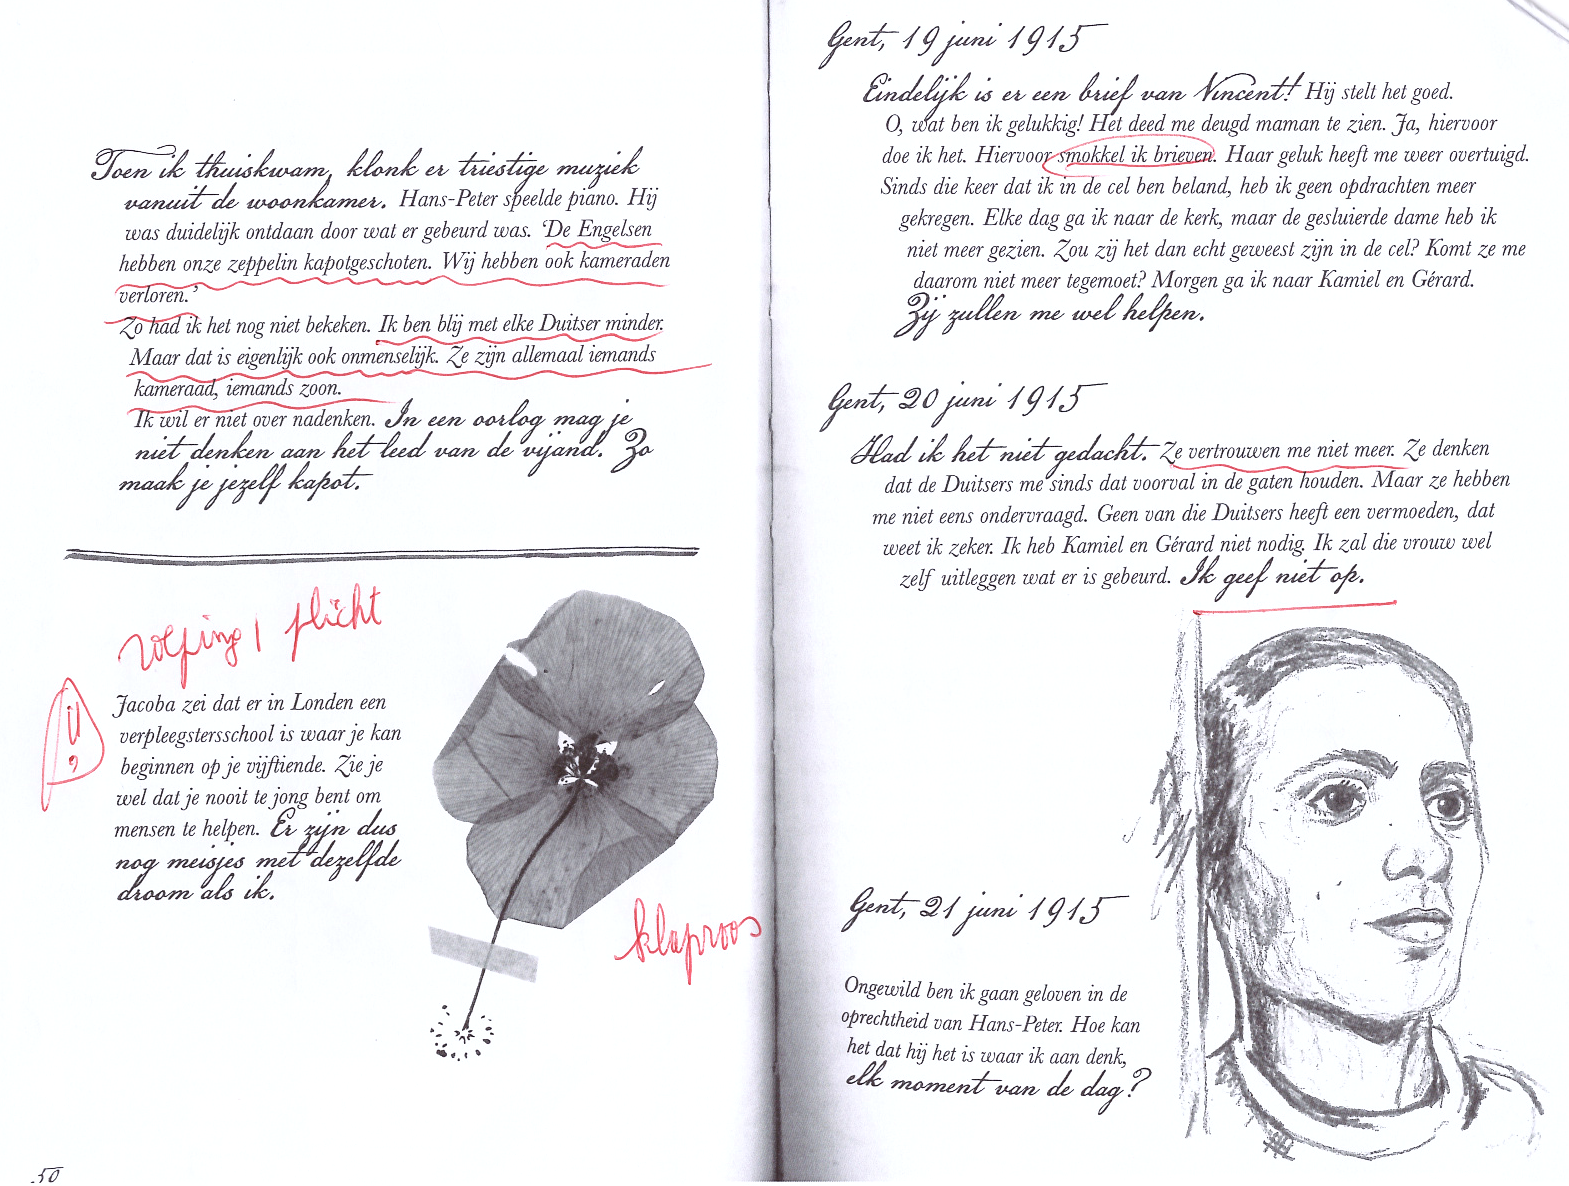 Toen ik thuiskwam, klonk er triestige muziek
vanuit de woonkamer. Hans-Peter speelde piano. Hij
was duidelijk ontdaan door wat er gebeurd was. ‘De Engelsen
hebben onze zeppelin kapotgeschoten. Wij hebben ook kameraden
verloren.’
Zo had ik het nog niet bekeken. Ik ben blij met elke Duitser minder.
Maar dat is eigenlijk ook onmenselijk. Ze zijn allemaal iemands
kameraad, iemands zoon.
Ik wil er niet over nadenken. In een oorlog mag je
niet denken aan het leed van de vijand. Zo
maak je jezelf kapot.
plicht
Jacoba zei dat er in Londen een
verpleegstersschool is waar je kan
beginnen op je vijftiende. Zie je
wel dat je nooit te jong bent om
mensen te helpen. Er zijn dus
nog meisjes met dezelfde
droom als ik.
klaproos
50
Gent, 19 juni 1915
Eindelijk is er een brief van Vincent! Hij stelt het goed.
O, wat ben ik gelukkig! Het deed me deugd maman te zien. Ja, hiervoor
doe ik het. Hiervoor smokkel ik brieven. Haar geluk heeft me weer overtuigd.
Sinds die keer dat ik in de cel ben beland, heb ik geen opdrachten meer
gekregen. Elke dag ga ik naar de kerk, maar de gesluierde dame heb ik
niet meer gezien. Zou zij het dan echt geweest zijn in de cel? Komt ze me
daarom niet meer tegemoet? Morgen ga ik naar Kamiel en Gérard.
Zij zullen me wel helpen.
Gent, 20 juni 1915
Had ik het niet gedacht. Ze vertrouwen me niet meer. Ze denken
dat de Duitsers me sinds dat voorval in de gaten houden. Maar ze hebben
me niet eens ondervraagd. Geen van die Duitsers heeft een vermoeden, dat
weet ik zeker. Ik heb Kamiel en Gérard niet nodig. Ik zal die vrouw wel
zelf uitleggen wat er is gebeurd. Ik geef niet op.
Gent, 21 juni 1915
Ongewild ben ik gaan geloven in de
oprechtheid van Hans-Peter. Hoe kan
het dat hij het is waar ik aan denk,
elk moment van de dag?